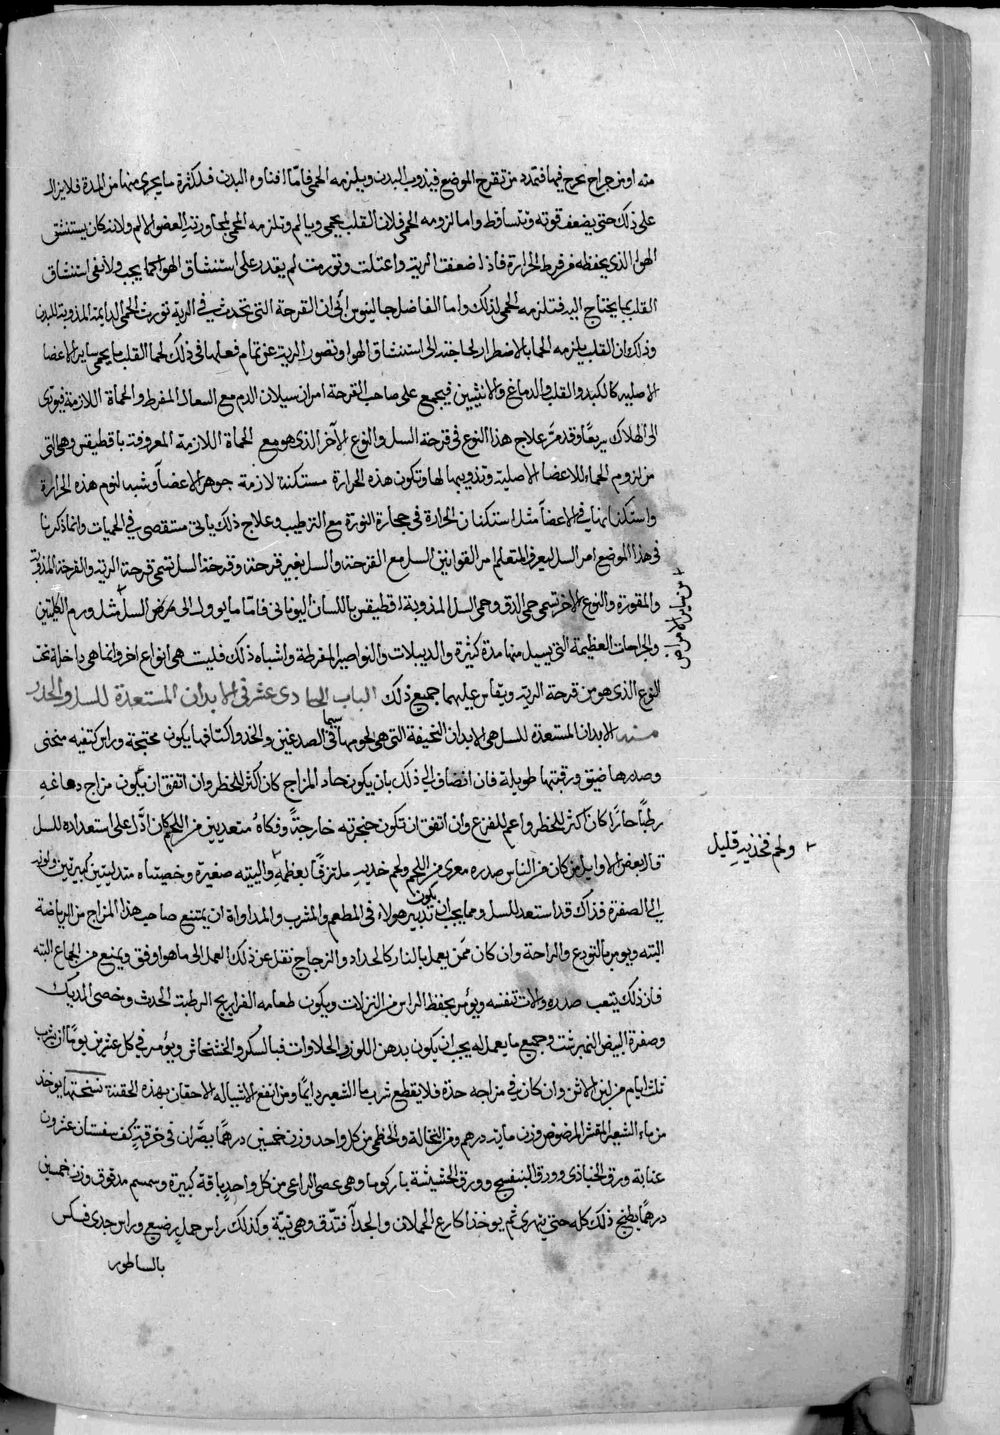 منه او من جراح يخرج فيها فتمدد من تقرح الموضع فيذوب البدن ويلزمه الحمى فاما افناوه البدن فلكثرة ما يجرى منها من المدة فلا يزال
على ذلك حتى يضعف قوته وتتساقط واما لزومه الحمى فلان القلب يحمى ويالم وتلزمه الحمى لمجاورته العضو الالم ولانه كان يستنشق
الهوا الذى يحفظه من فرط الحرارة فاذا ضعفت الرية واعتلت وتورمت لم يقدر على استنشاق الهوا كما يجب ولا تفى استنشاق
القلب بما يحتاج اليه فتلزمه الحمى لذلك واما الفاضل جالينوس راى ان القرحة التى تحدث فى الرية تورث الحمى الدايمة المذوبة للبدن
وذلك ان القلب يلزمه الحما بالاضطرار لحاجته الى استنشاق الهوا وقصور الرية عن تمام فعلها فى ذلك لحما القلب ما يحمى ساير الاعضا
الاصلية كالكبد والقلب والدماغ والانثيين فيجمع على صاحب القرحة امران سيلان الدم مع السعال المفرط والحماة اللازمة فيودى
الى الهلاك سريعا وقد مر علاج هذا النوع فى قرحة السل والنوع الآخر الذى هو مع الحماة اللازمة المعروفة باقطيقس وهى التى
من لزوم الحماء للاعضا الاصلية وتذويبها لها وتكون هذه الحرارة مستكنة لازمة جوهر الاعضا وشبه لزوم هذه الحرارة
واستكنانها فى الاعضا مثل استكنان الحرارة فى حجارة النورة مع الترطيب وعلاج ذلك ياتى مستقصى فى الحميات وانما ذكرنا
فى هذا الموضع امر السل ليعرف المتعلم امر القوانين السل مع القرحة والسل بغير قرحة وقرحة السل تسمى قرحة الرية والقرحة المذوبة
والمقورة والنوع الاخر تسمى حمى الدق وحمى السل المذوبة اقطيقس باللسان اليونانى فاما ما يوول الى مرض السل مثل ورم الكليتين
من ساير الامراض
والجراحات العظيمة التى يسيل منها مدة كثيرة والدبيلات والنواصير المفرطة واشباه ذلك فليست هى انواع اخر وانما هى داخلة تحت
النوع الذى هو من قرحة الرية ويقاس عليها جميع ذلك الباب الحادى عشر فى الابدان المستعدة للسل والحذر
منه الابدان المستعدة للسل هى الابدان النحيفة التى هى لحومها سيما فى الصدغين والخد واكتافها يكون مجنحة وراس كتفيه منحنى
وصدرها ضيق ورقبتها طويلة فان انضاف الى ذلك بان يكون حاد المزاج كان اكثر للخطر وان اتفق ان يكون مزاج دماغه
رطبا حارا كان اكثر للخطر واعم للفزع وان اتفق ان تكون حنجرته خارجة وفكاه متعديين من اللحم كان ادل على استعداده للسل
قال بعض الاوايل من كان من الناس صدره معرى من اللحم ولحم خديه ملتزقا بعظمه واليتيه صغيرة وخصيتاه متدليتين كبيرتين ولونه
ولحم فخذيه قليل
الى الصفرة فذاك قد استعد للسل ومما يجب ان يكون تدبير هولاء فى المطعم والمشرب والمداواة ان يمتنع صاحب هذا المزاج من الرياضة
البته ويومر بالتودع والراحة وان كان ممن يعمل بالنار كالحداد والزجاج نقل عن ذلك العمل الى ما هو اوفق ويمنع من الجماع البته
فان ذلك يتعب صدره والات تنفسه ويؤمر بحفظ الراس من النزلات ويكون طعامه الفراريج الرطبة الحدث وخصى الديك
وصفرة البيض النمبرشت وجميع ما يعمل له يجب ان يكون بدهن اللوز والحلاوات فبالسكر والخشخاش ويؤمر فى كل عشرين يوما ان يشرب
ثلث ايام من لبن الاتن وان كان فى مزاجه حدة فلا يقطع شرب ما الشعير دايما ومن انفع الاشيا له الاحقان بهذه الحقنة نسختها يوخذ
من ماء الشعير المقشر المرضوض وزن ماية درهم ومن النخالة والخطمى من كل واحد وزن خمسين درهما يصران فى خرقة كف سفستان عشرون
عنابة ورق الخبازى وورق البنفسج وورق الحشيشة باركوما وهى عصى الراعى من كل واحد باقة كبيرة وسمسم مدقوق وزن خمسين
درهما يطبخ ذلك كله حتى يتهرى ثم يوخذ اكارع الحملان والجدآ فتدق وهى نية وكذلك راس حمل رضيع وراس جدى فكس
بالساطور